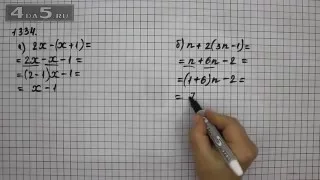 4YA5.RU
1334.
а) 2x-(x+1)=
= 2x-x-1=
=(2-1)x-1=
= x-1
б) n+2(3n-1)=
= n+6n-2=
=(1+6)n-2=
= 7